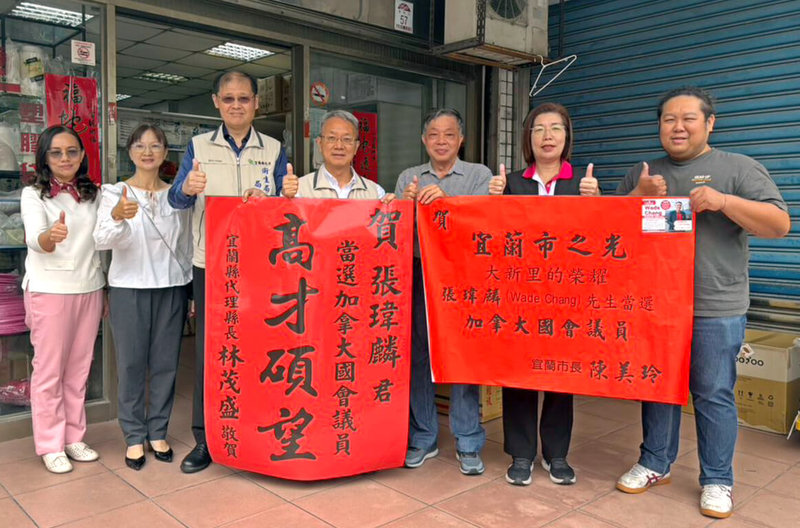 57
福地
賀 張瑋麟 君
當選加拿大國會議員
高才碩望
宜蘭縣代理縣長 林茂盛 敬賀
賀
宜蘭市之光
大新里的榮耀
張瑋麟 (Wade Chang) 先生當選
加拿大國會議員
宜蘭市長 陳美玲
Wade Chang